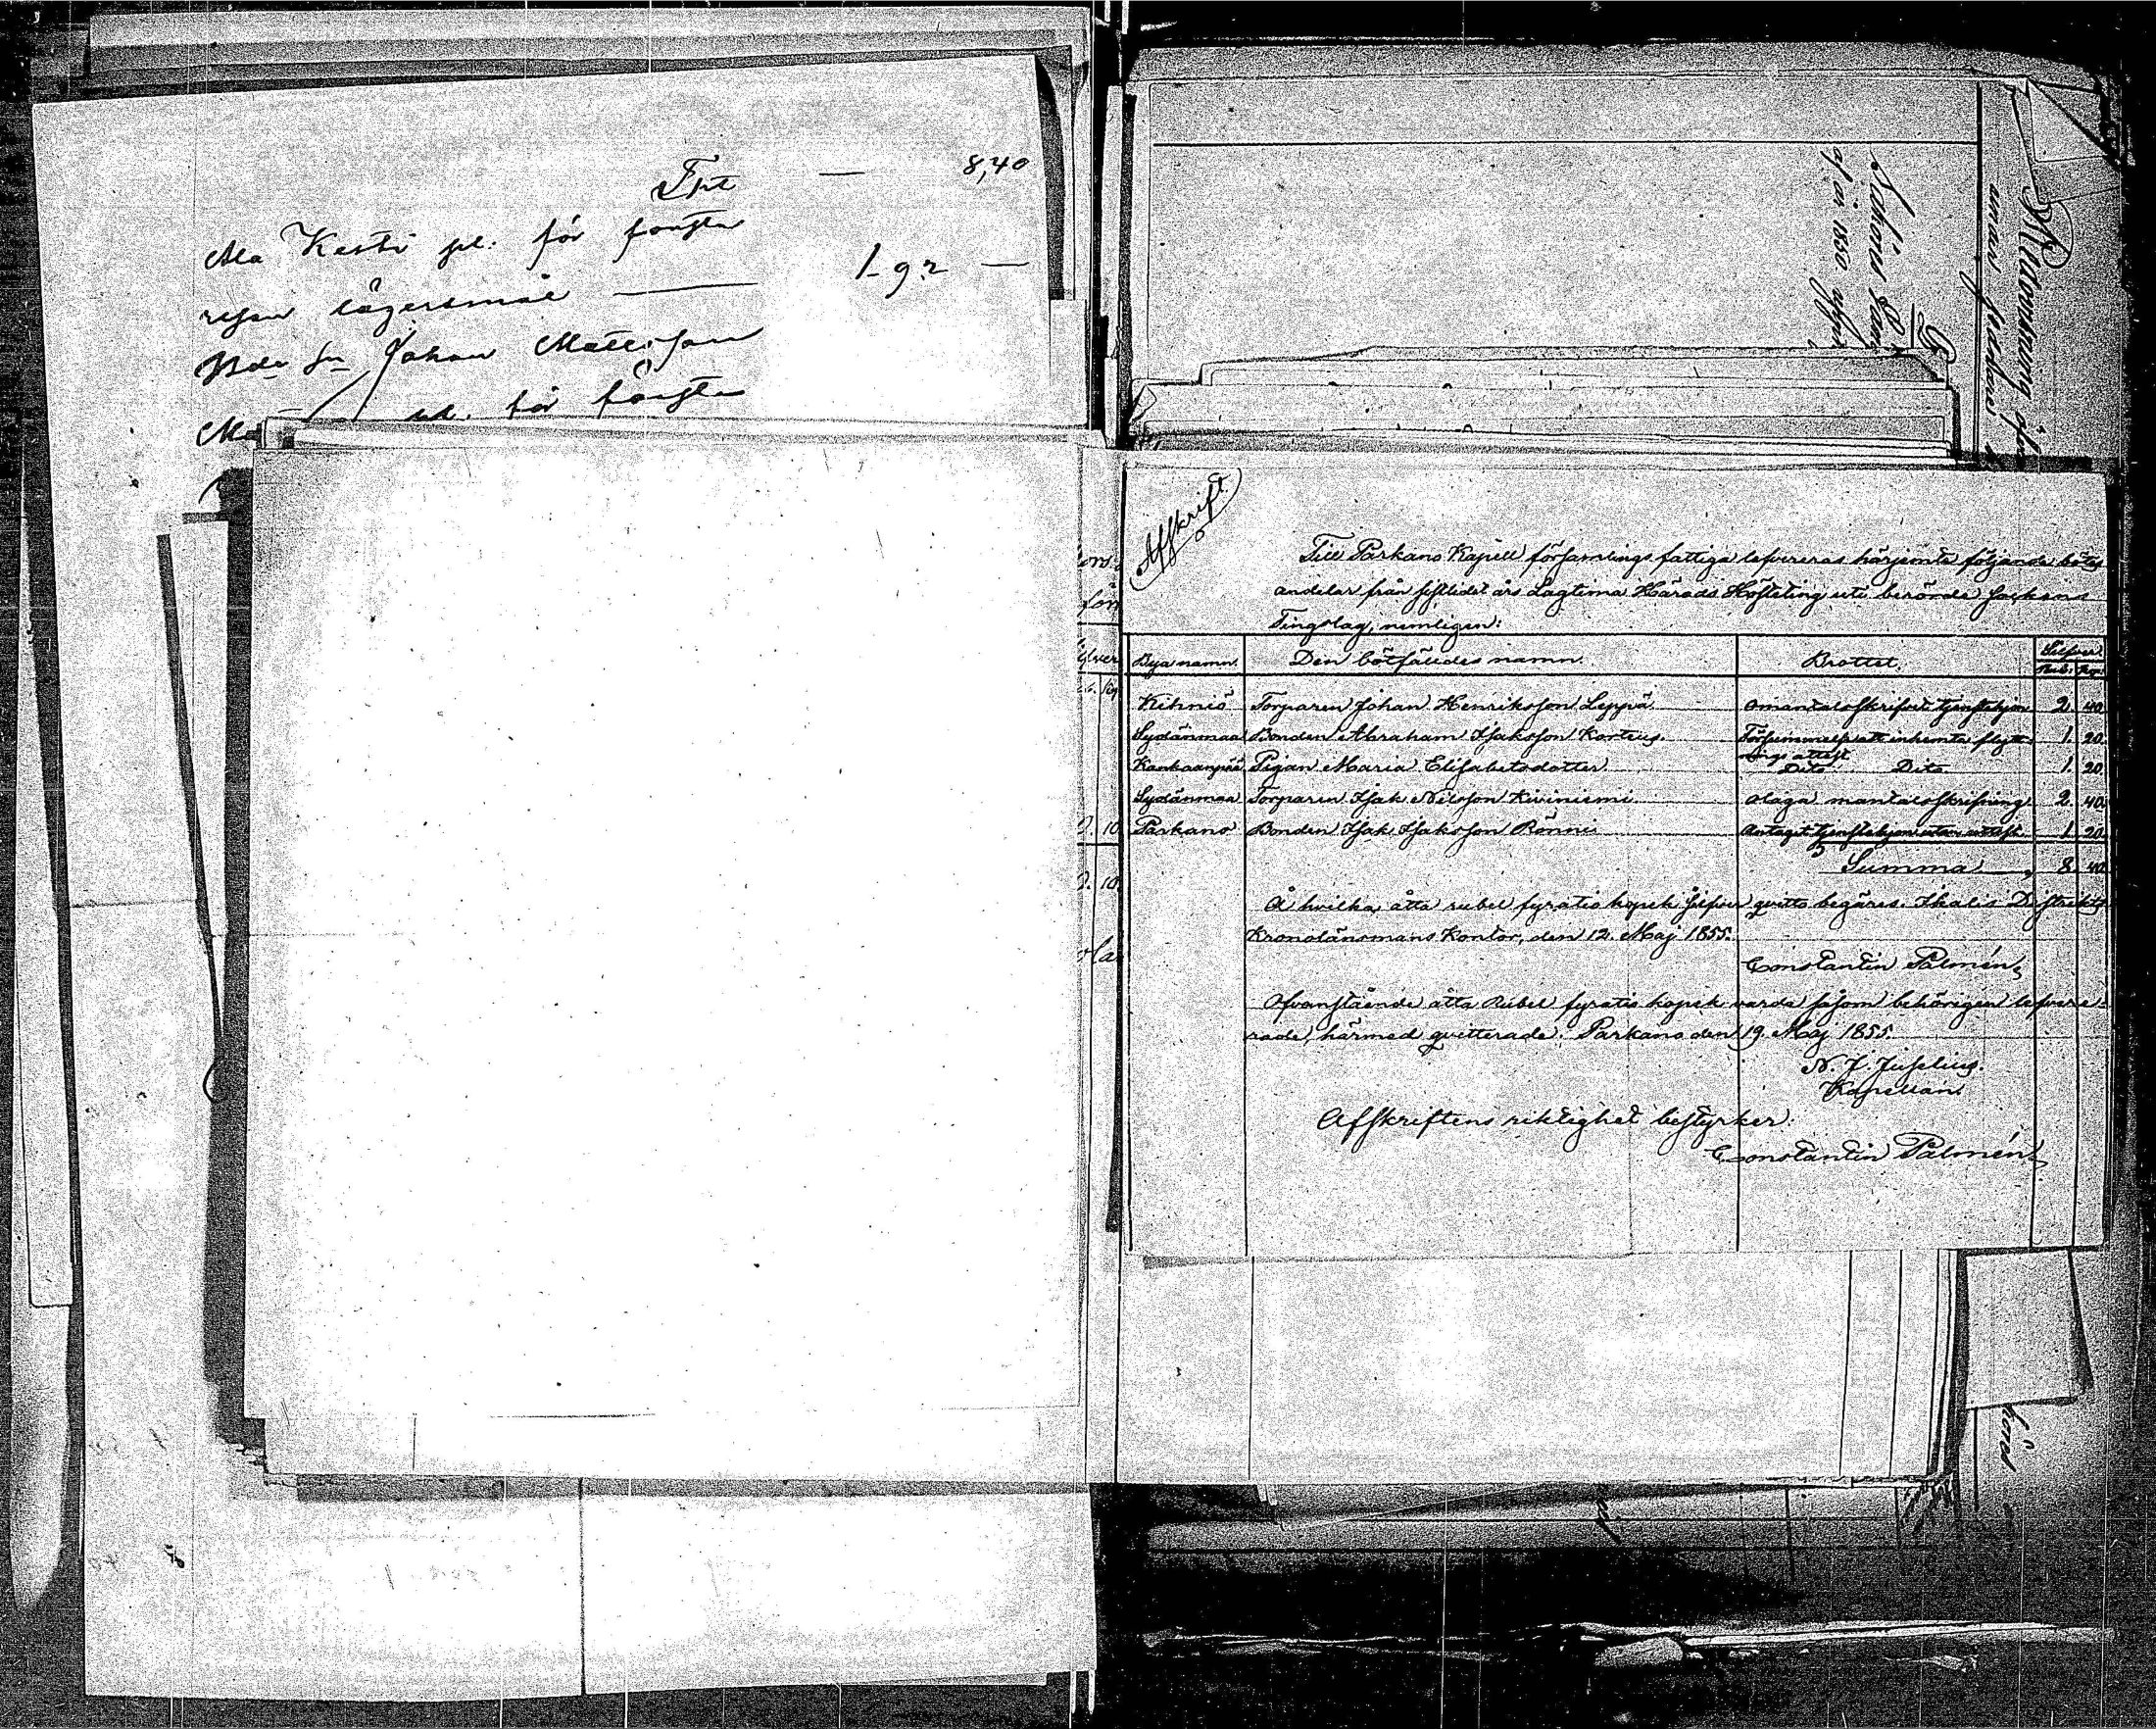 Tpt — 8,40
Kesti för
lägersmål — 1-92 —
Johan Matts son
för
Afskrift.
Till Parkano Kapell församlings fattiga lefvereras härjemte följande bötes
andelar från sistledet års Lagtima Härads Hösteting uti berörde Sockens
Tingslag, nemligen:
Bya namn. Den bötfäldes namn. Brottet. Silfver.
Rub. Kop.
Kihniö Torparen Johan Henriksson Leppä omantalsskrifvet tjenstehjon 2. 40.
Sydänmaa Bonden Abraham Isaksson Korteus. Försummelse att inhemta flytt-
nings attest 1. 20.
Kankaanpää Pigan Maria Elisabetsdotter Dito Dito 1. 20.
Sydänmaa Torparen Isak Nilsson Kiviniemi olaga mantalsskrifning 2. 40.
Parkano Bonden Isak Isaksson Rönni Antagit tjenstehjon utan attest 1. 20.
Summa 8. 40.
Å hvilka åtta rubel fyratio kopek silfver qvitto begäres. Ikalis Distrikts
Kronolänsmans Kontor, den 12. Maj 1855.
Constantin Palmén.
Ofvanstående åtta Rubel fyratio kopek varda såsom behörigen lefvere-
rade, härmed qvitterade. Parkano den 19. Maj 1855.
N. J. Juselius.
Kapellan.
Afskriftens riktighet bestyrker:
Constantin Palmén.